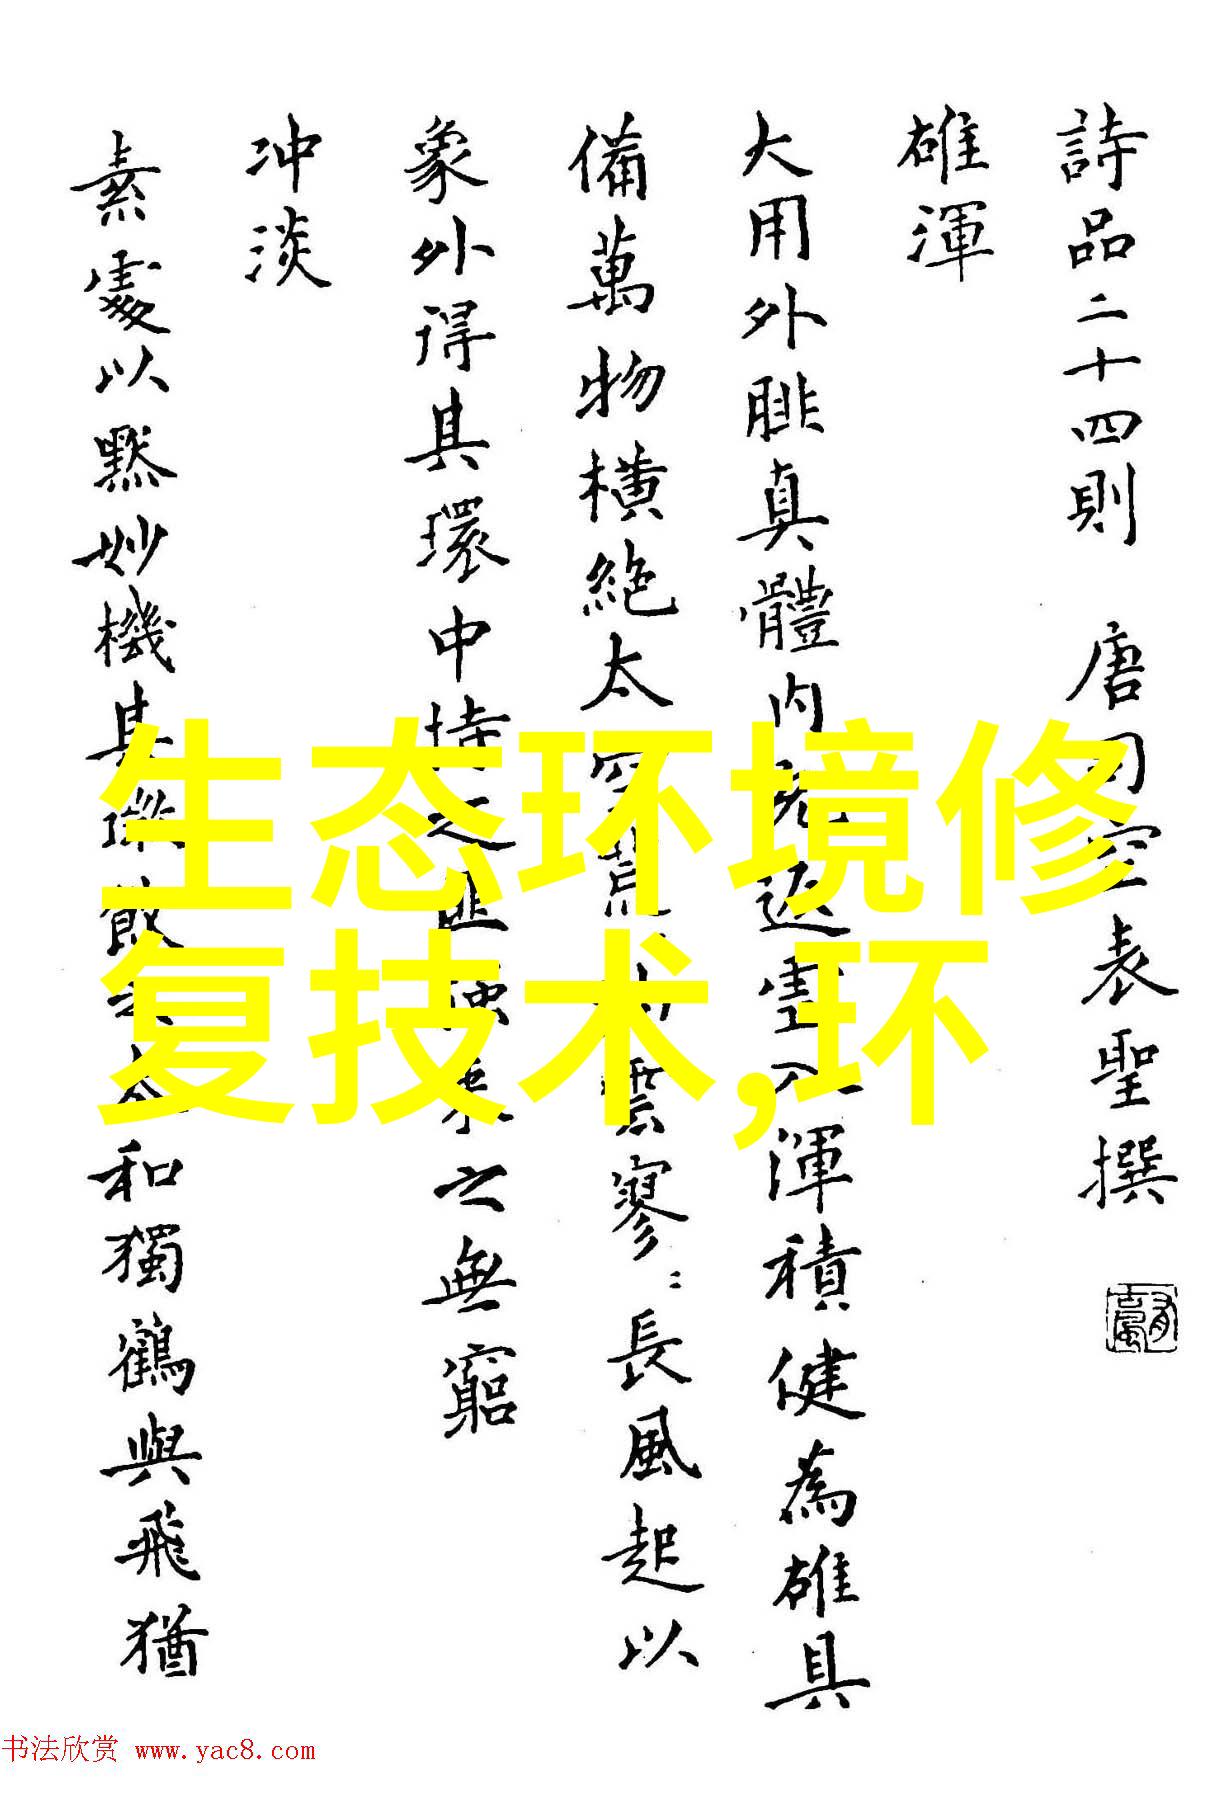 詩品二十四則 唐司空表聖撰
雄渾
大用外腓真體内充返虛入渾積健為雄具
備萬物橫絕太空荒荒油雲寥〻長風起以
象外得其環中持之匪強來之無窮
冲淡
素處以默妙機其微飲之太和獨鶴與飛猶
生态环境修
复技术,环
书法欣赏 www.yac8.com